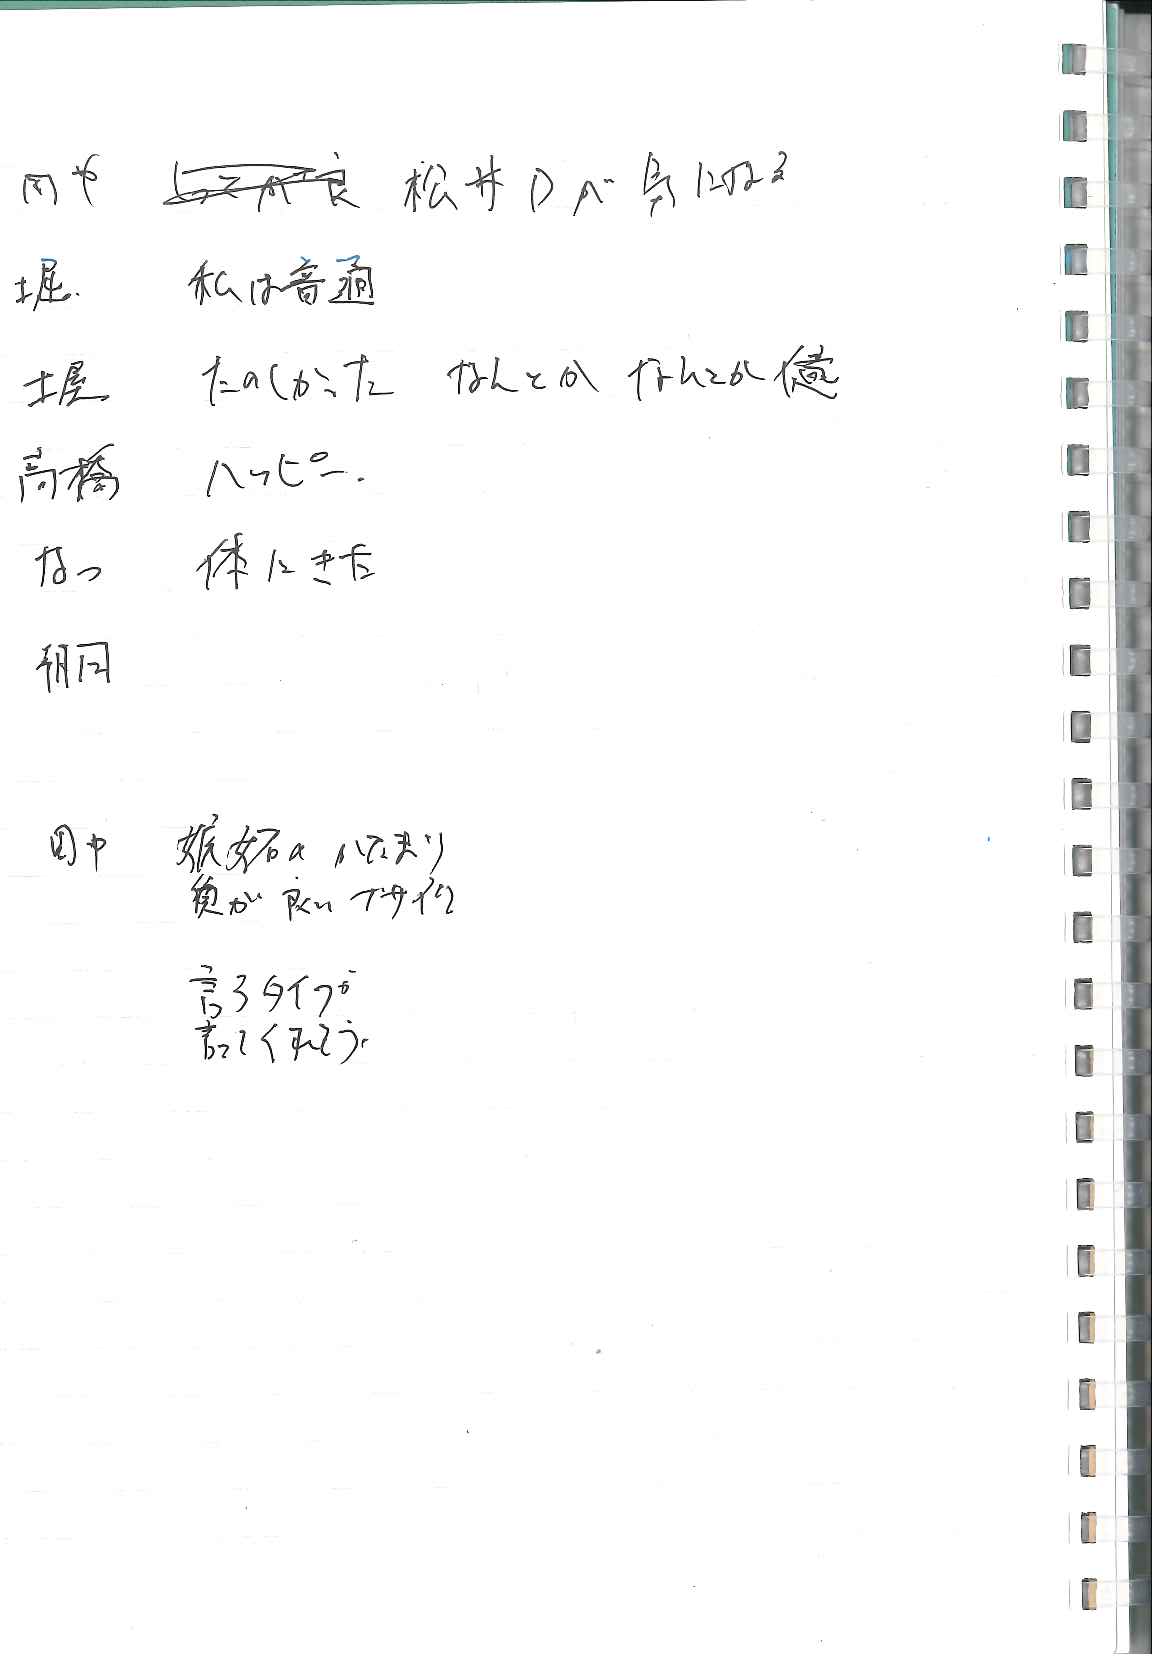 田中 松井Dが気になる
堀 私は普通
土屋 たのしかった なんとか なんとか億
高橋 ハッピー.
なつ 体にきた
朝日
田中 嫉妬のかたまり
頭が良い ブサイク
言うタイプか
言ってくれそう.